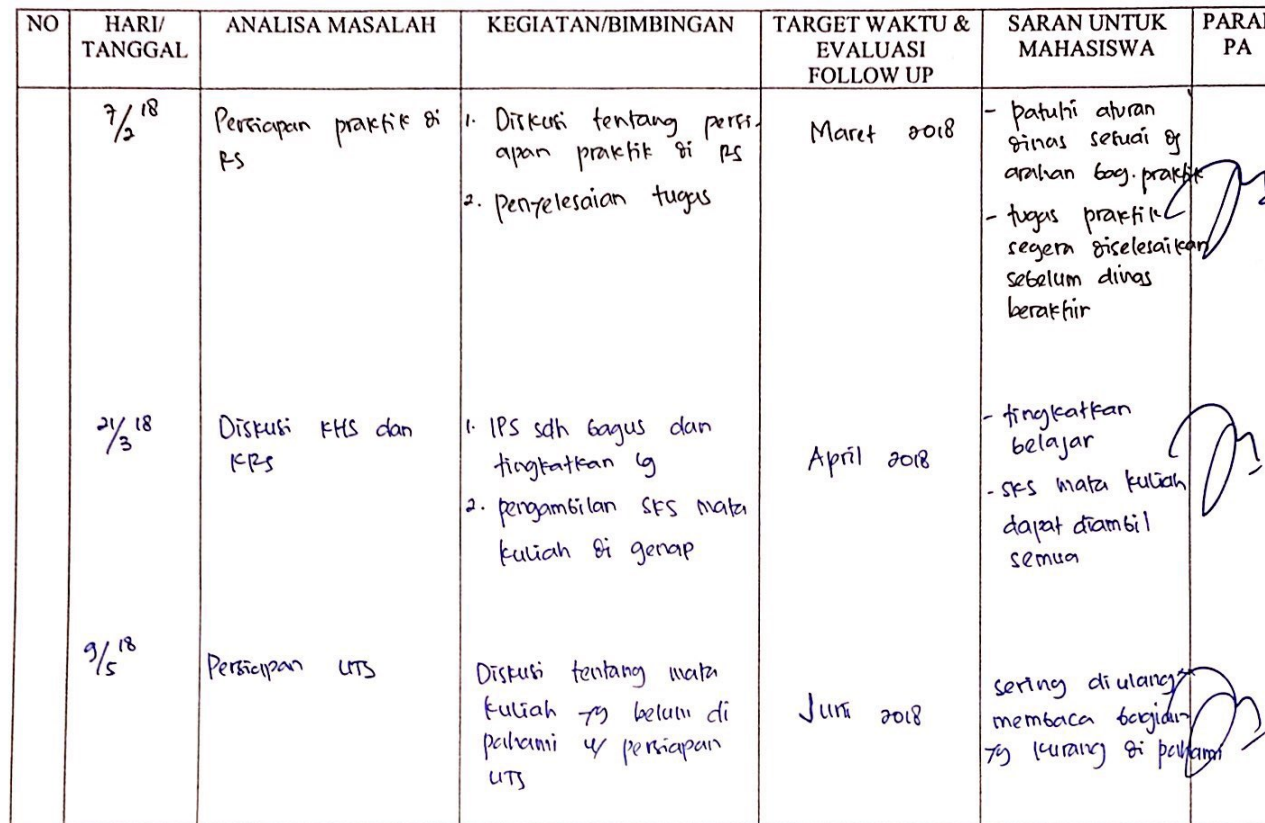 NO
HARI/
TANGGAL
ANALISA MASALAH
KEGIATAN/BIMBINGAN
TARGET WAKTU &
EVALUASI
FOLLOW UP
SARAN UNTUK
MAHASISWA
PARAF
PA
7/2 18
Persiapan praktik di
RS
1. Diskusi tentang persi-
apan praktik di RS
2. penyelesaian tugas
Maret 2018
- patuhi aturan
dinas sesuai dg
arahan bag. praktik
- tugas praktik
segera diselesaikan
sebelum dinas
berakhir
21/3 18
Diskusi KHS dan
KRS
1. IPS sdh bagus dan
tingkatkan lg
2. pengambilan SKS mata
kuliah di genap
April 2018
- tingkatkan
belajar
- SKS mata kuliah
dapat diambil
semua
9/5 18
Persiapan UTS
Diskusi tentang mata
kuliah yg belum di
pahami u/ persiapan
UTS
Juni 2018
sering diulang"
membaca bagian
yg kurang di pahami